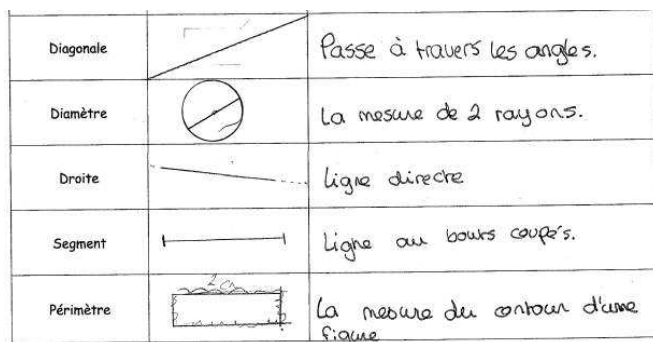 Diagonale
Passe à travers les angles.
Diamètre
La mesure de 2 rayons.
Droite
Ligne directe
Segment
Ligne au bouts coupés.
2 cm
Périmètre
La mesure du contour d'une
figure